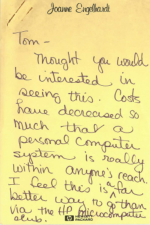 Joanne Engelhardt
Tom-
Thought you would
be interested in
seeing this. Costs
have decreased so
much that a
personal computer
system is really
within anyone's reach.
I feel this is a far
better way to go than
via the HP Microcomputer
club.
HEWLETT
PACKARD